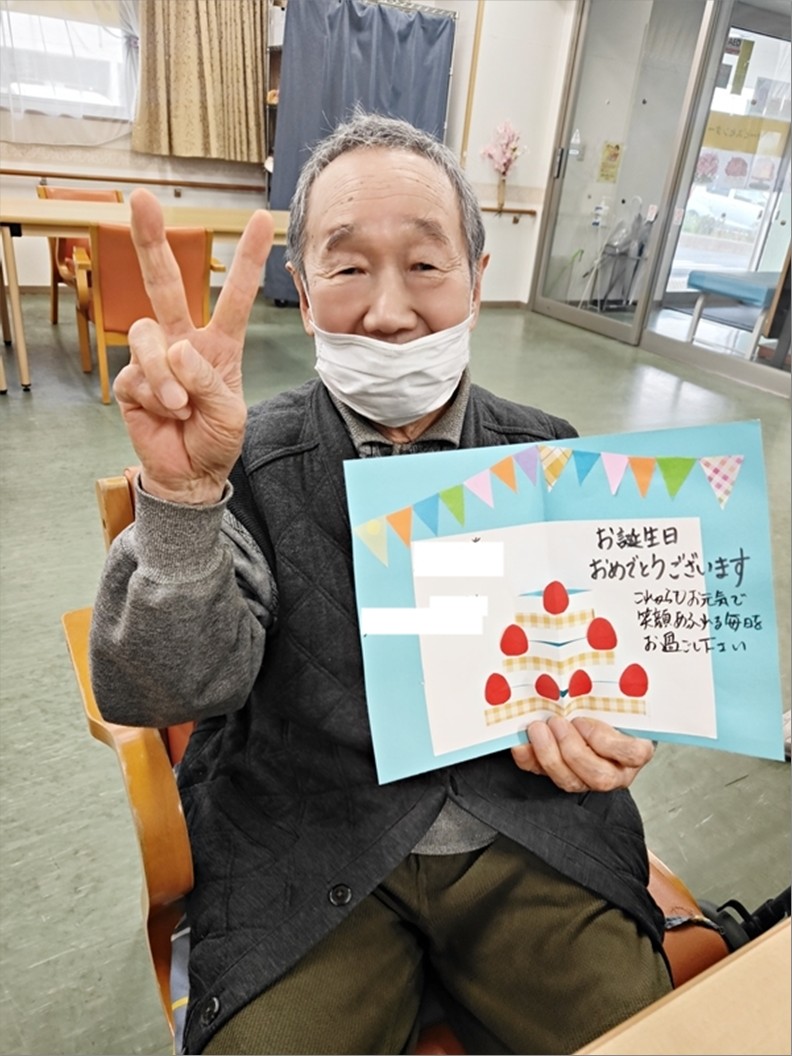 お誕生日
おめでとうございます
これからもお元気で
笑顔あふれる毎日を
お過ごし下さい